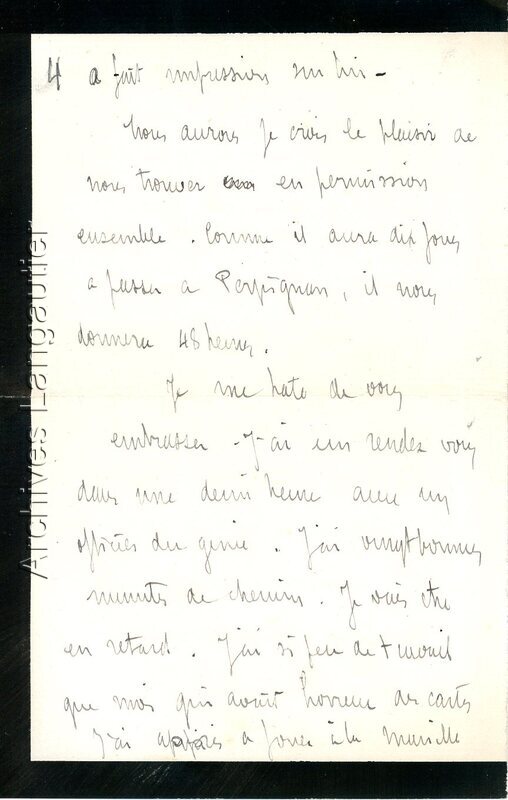 4 a fait impression sur lui -
Nous aurons je crois le plaisir de
nous trouver en permission
ensemble. Comme il aura dix jours
a passer a Perpignan, il nous
donnera 48 heures.
Je me hate de vous
embrasser - J'ai un rendez vous
dans une demi heure avec un
officier du genie. J'ai vingt bonnes
minutes de chemin. Je vais etre
en retard. J'ai si peu de travail
que moi qui avait horreur des cartes
J'ai appris a jouer à la manille
Archives Langautier